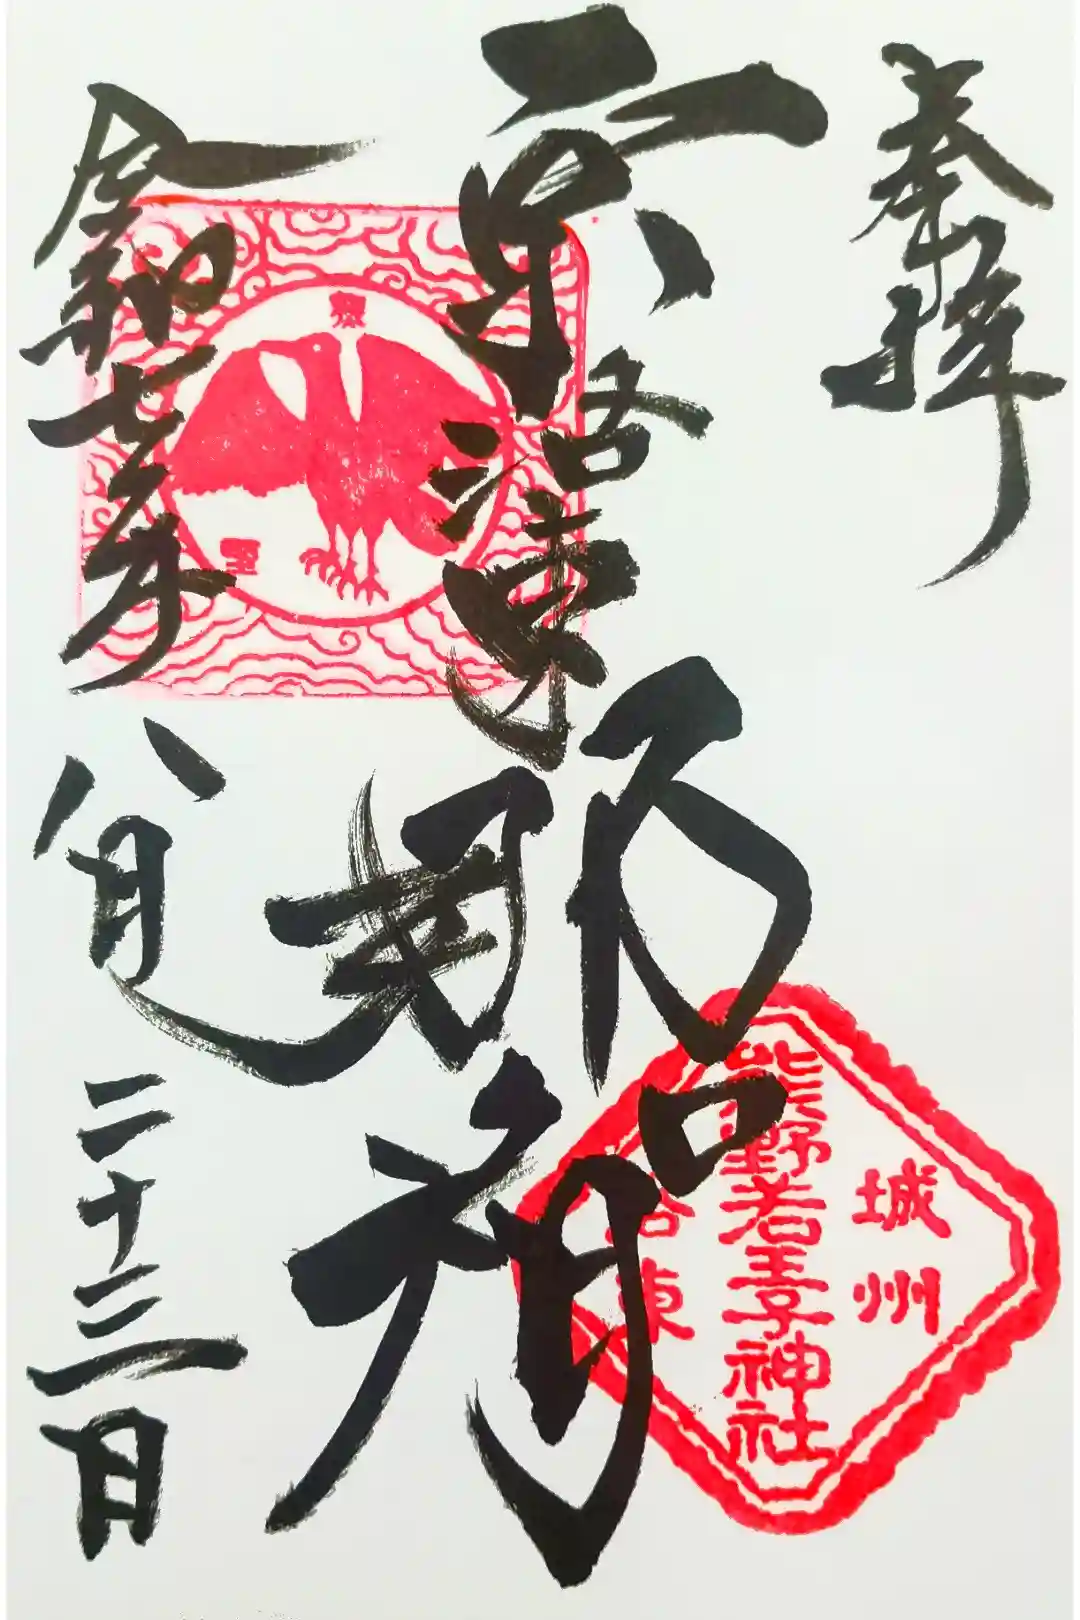 奉拝
京洛東那智
城州
熊野若王子神社
洛東
令和七年八月二十三日